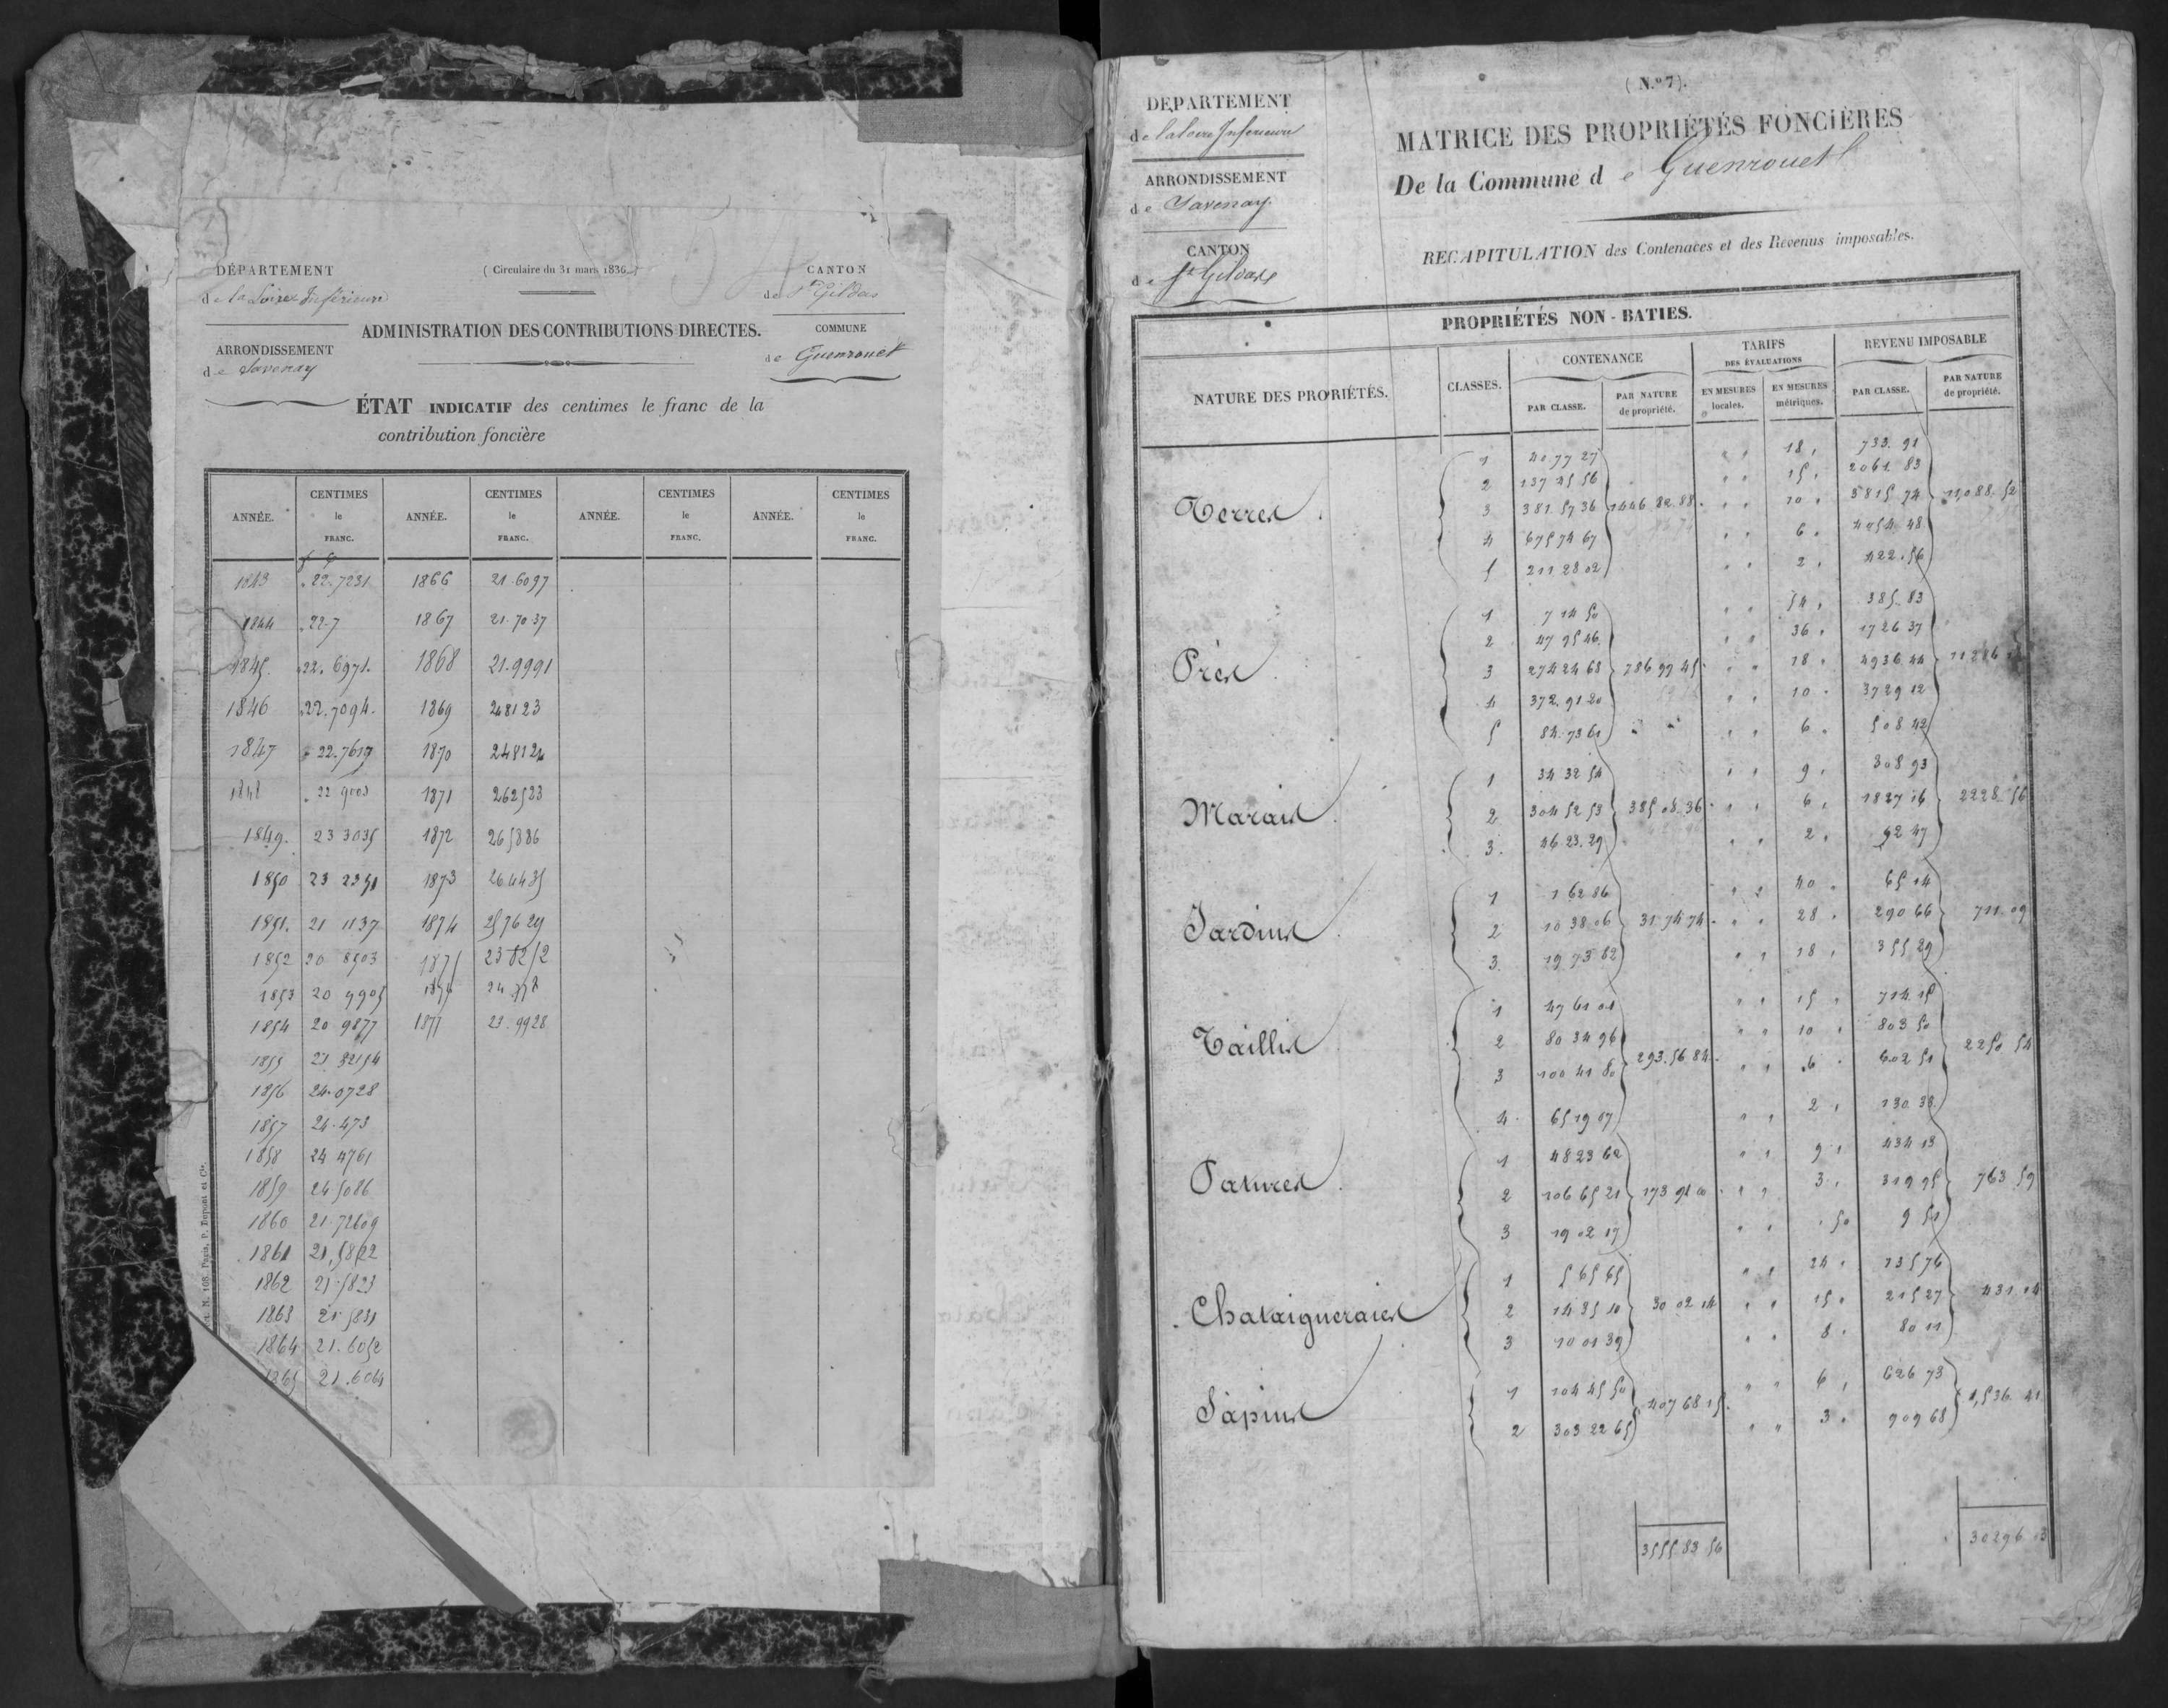 DÉPARTEMENT
de la Loire Inférieure
( Circulaire du 31 mars 1836. )
CANTON
de St Gildas
ADMINISTRATION DES CONTRIBUTIONS DIRECTES.
ARRONDISSEMENT
de Savenay
COMMUNE
de Guenrouet
ÉTAT INDICATIF des centimes le franc de la
contribution foncière
ANNÉE. CENTIMES le FRANC. ANNÉE. CENTIMES le FRANC. ANNÉE. CENTIMES le FRANC. ANNÉE. CENTIMES le FRANC.
1843 22.7231 1866 21.6097
1844 22.7 1867 21.7037
1845. 22.6971. 1868 21.9991
1846 22.7094. 1869 248123
1847 22.7617 1870 248124
1848 1871 262523
1849. 23 3035 1872 265886
1850 23 2351 1873 264435
1851. 21 1137 1874 257629
1852 20 8503 1875
1853 20 9905
1854 20 9877 1877 23.9928
1855 21 82154
1856 24.0728
1857 24.473
1858 24 4761
1859 24 5086
1860 21.72609
1861 21,5822
1862 21.5823
1863 21.5831
1864 21.6052
1865 21.6064
N. 108. Paris, P. Dupont et Cie.
(N.o 7).
DEPARTEMENT
de la Loire Inferieure
ARRONDISSEMENT
de Savenay.
CANTON
de St Gildas
MATRICE DES PROPRIÉTÉS FONCIÈRES
De la Commune de Guenrouet
RECAPITULATION des Contenances et des Revenus imposables.
PROPRIÉTÉS NON-BATIES.
NATURE DES PROPRIÉTÉS. CLASSES. CONTENANCE TARIFS DES ÉVALUATIONS REVENU IMPOSABLE
PAR CLASSE. PAR NATURE de propriété. EN MESURES locales. EN MESURES métriques. PAR CLASSE. PAR NATURE de propriété.
Terres
1 40 77 27 18 733. 91
2 137 45 56 15 2061 83
3 381 57 36 1446 82 88 10 3815 74 11,088 52
4 675 74 67 6 4054 48
5 211 28 02 2 422.56
Prés
1 7 14 50 54 385. 83
2 47 95 46 36 1726 37
3 274 24 68 786 99 45 18 4936 44
4 372. 91 20 10 3729 12
5 84. 73 61 6 508 42
Marais
1 34 32 54 9 308 93
2 304 52 53 385 08. 36 6 1827 16 2228. 56
3. 46 23. 29 2 92 47
Jardins
1 1 62 86 40 65 14
2 10 38 06 31. 74 74 28 290 66 711 09
3. 19 73 82 18 355 29
Taillis
1 47 61 01 15 714. 15
2 80 34 96 10 803 50
3 100 41 80 293. 56 84 6 602 51 2250 54
4 65 19 07 2 130. 38
Patures
1 48 23 62 9 434 13
2 106 65 21 173 91 00 3 319 95 763 59
3 19 02 17 50 9 51
Chataigneraies
1 5 65 65 24 135 76
2 14 35 10 30 02 14 15 215 27 431 14
3 10 01 39 8 80 11
Sapins
1 104 45 50 6 626 73
407 68 15 1,536. 41
2 303 22 65 3 909 68
3555 83 56 30296 13